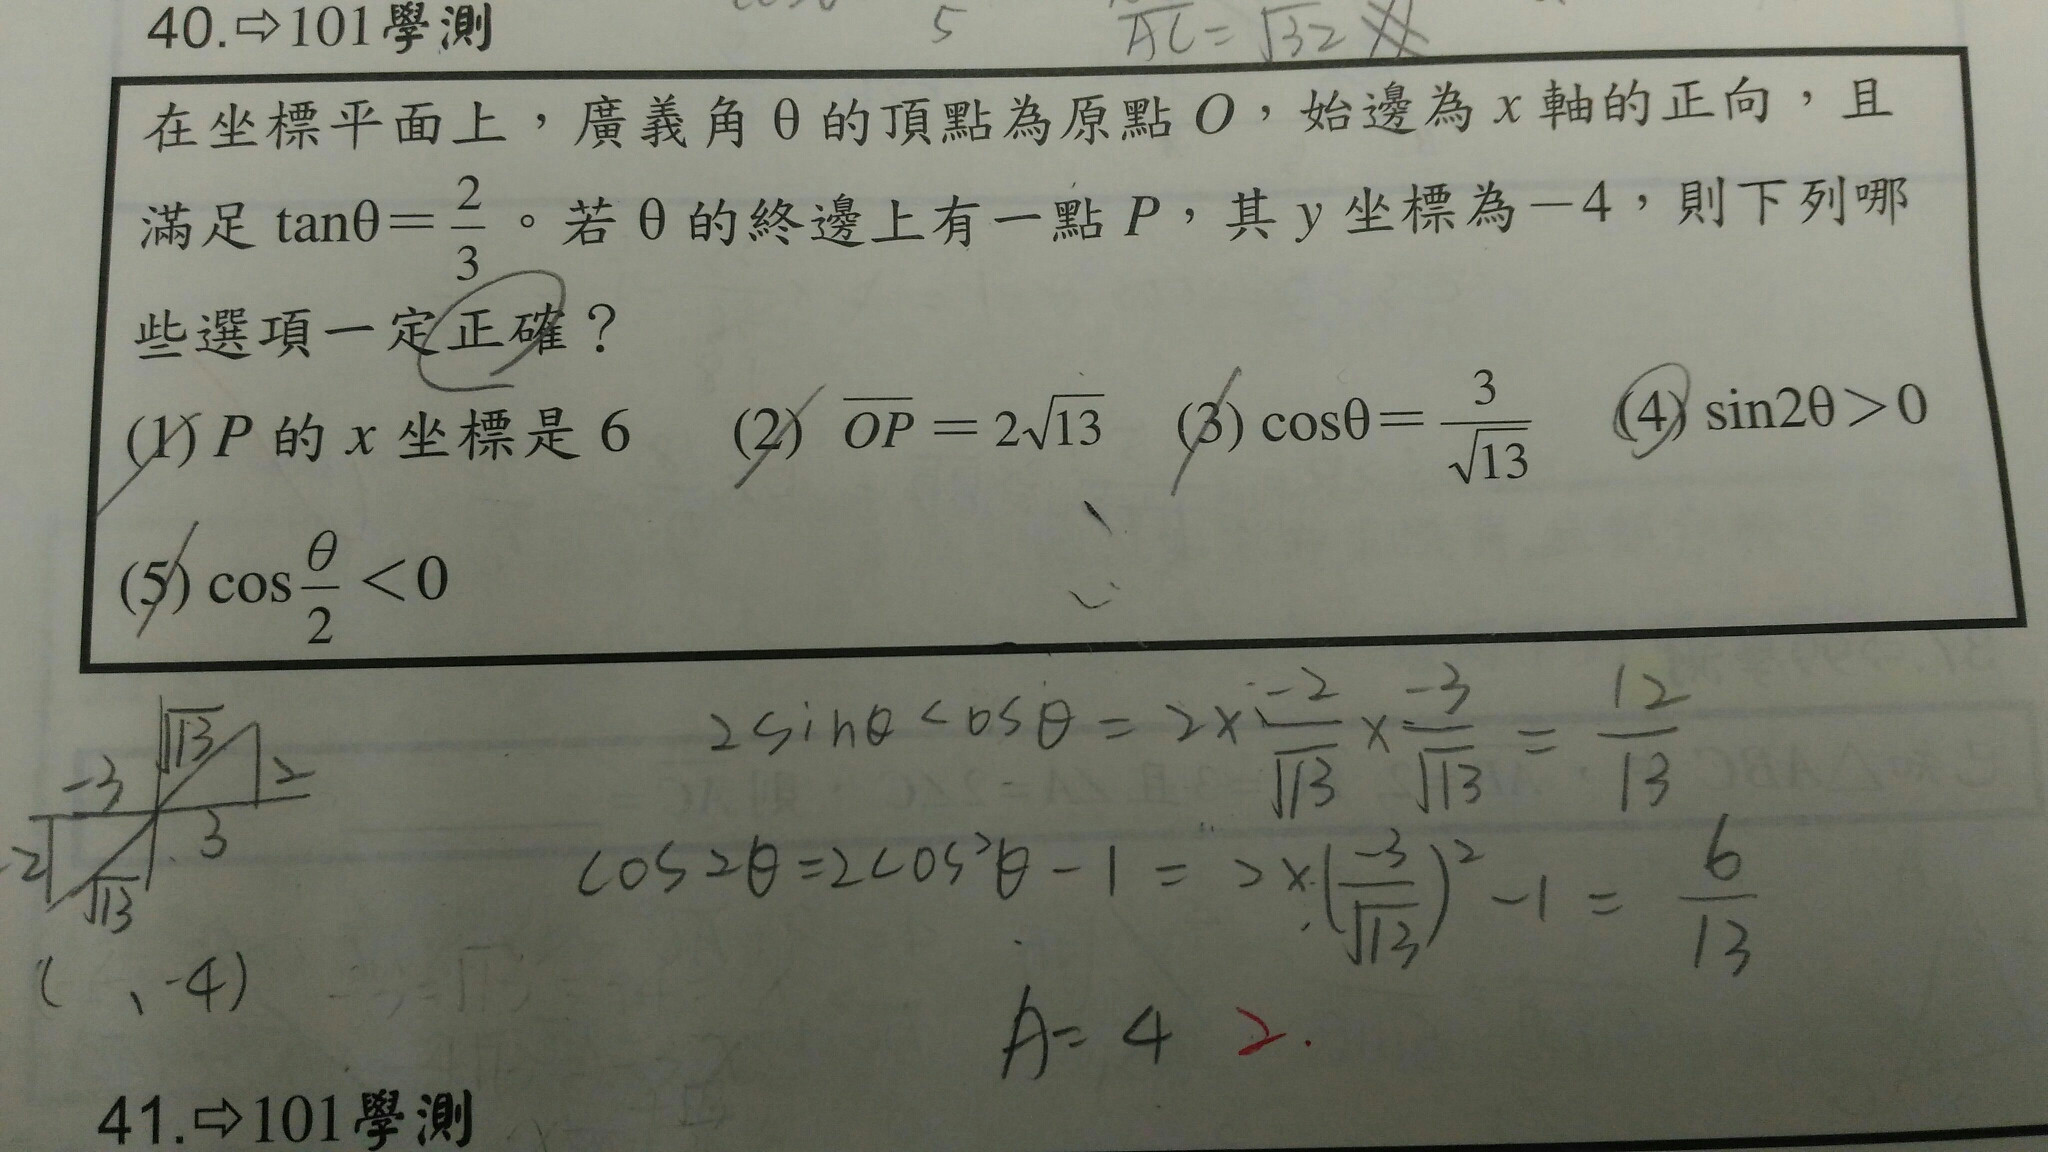 40.⇨101學測
5
AC=√32
在坐標平面上，廣義角 θ 的頂點為原點 O，始邊為 x 軸的正向，且
滿足 tanθ=2/3。若 θ 的終邊上有一點 P，其 y 坐標為-4，則下列哪
些選項一定正確？
(1) P 的 x 坐標是 6 (2) OP = 2√13 (3) cosθ=3/√13 (4) sin2θ>0
(5) cos θ/2 <0
√13
-3
2
3
-2
√13
( 、-4)
2sinθcosθ = 2×-2/√13×-3/√13 = 12/13
cos2θ=2cos²θ-1 = 2×(-3/√13)²-1 = 6/13
A= 4 2.
41.⇨101學測